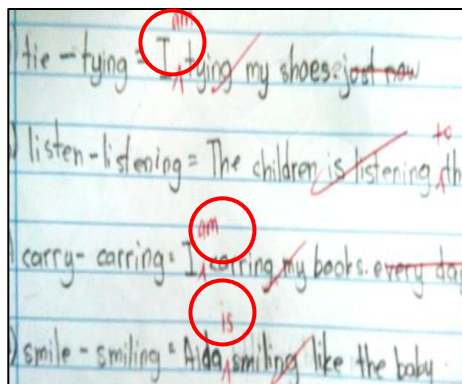 am
) tie - tying = I ^ tying my shoes. just now
to
) listen - listening = The children is listening ^ th
am
) carry - carring = I ^ carring my books. every day
is
) smile - smiling = Aida ^ smiling like the baby.